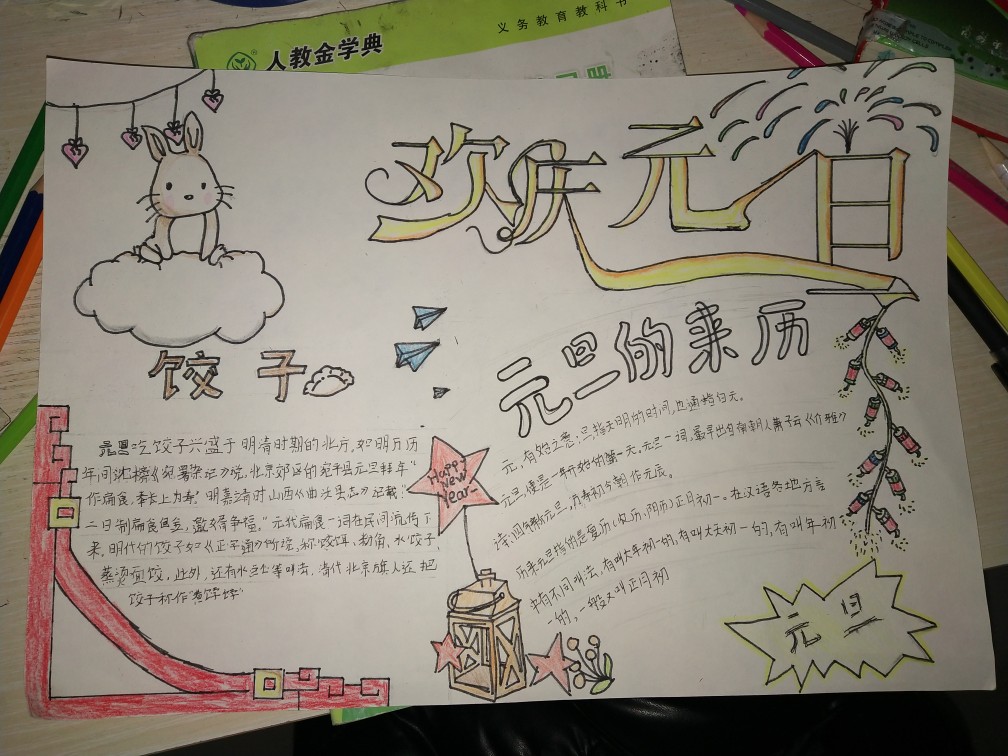 人教金学典
义务教育教科书
欢庆元旦
饺子
元旦吃饺子兴盛于明清时期的北方。如明万历
年间沈榜《宛署杂记》说，北京郊区的宛平县元旦拜年"
作扁食，奉长上为寿。"明嘉靖时山西《曲沃县志》记载："
二日制扁食
元代扁食一词在民间流传下
来。明代们饺子如《正字通》所说，称饺饵、粉角、水饺子、
此外，还有水点心等叫法，清代北京旗人还把
饺子称作"煮饽饽"
Happy
New
Year
元旦的来历
元，有始之意；旦指天明的时间，也通指白天。
元旦，便是一年开始的第一天。元旦一词，最早出自南朝人萧子云《介雅》
诗：四气新元旦，万寿初今朝作元辰。
历来元旦指的是夏历（农历、阴历）正月初一。在汉语各地方言
中有不同叫法，有叫大年初一的，有叫大天初一的，有叫年初
一的，一般又叫正月初
元旦